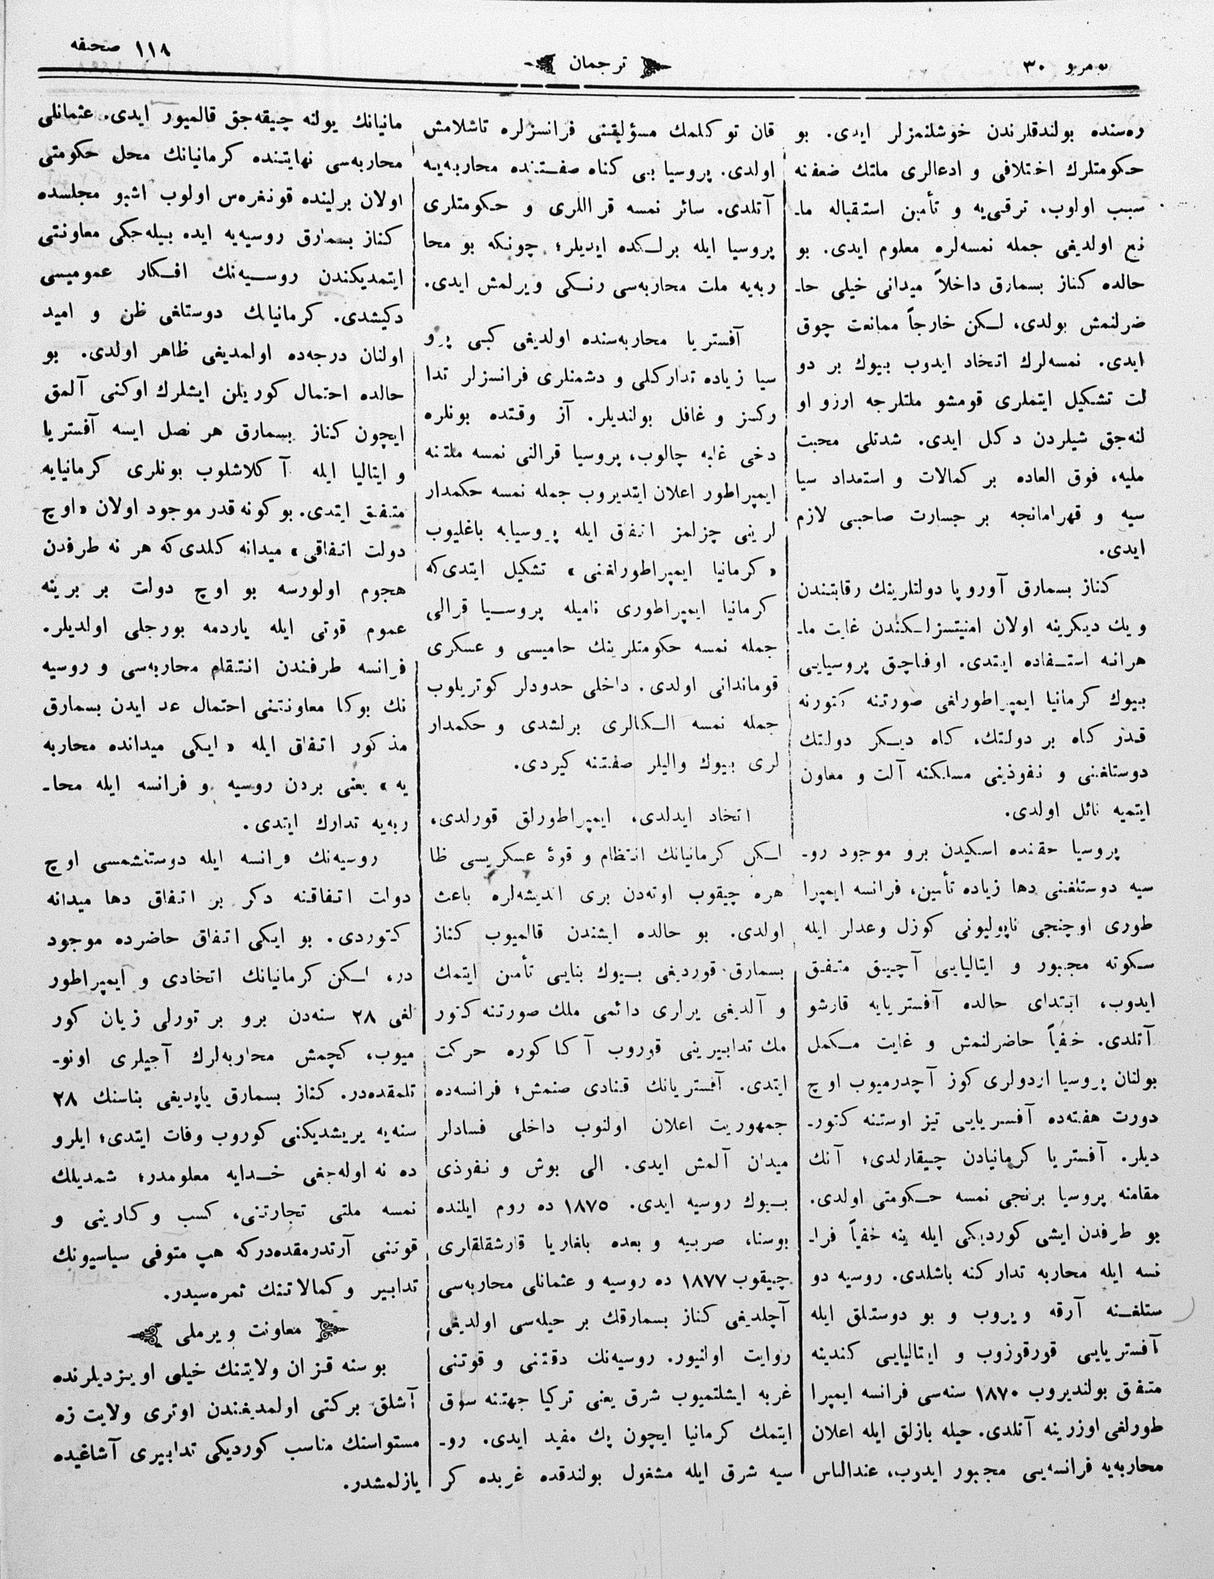 نومرو ۳۰
ترجمان
۱۱۸ صحیفه
ره‌سنده بولندقلرندن خوشلنمزلر ایدی. بو
حكومتلرك اختلافی و ادعالری ملتك ضعفنه
سبب اولوب، ترقی‌یه و تأمین استقباله ما-
نع اولدیغی جمله نمسه‌لره معلوم ایدی. بو
حالده كناز بسمارق داخلاً میدانی خیلی حا-
ضرلنمش بولدی، لكن خارجاً ممانعت چوق
ایدی. نمسه‌لرك اتحاد ایدوب بیوك بر دو
لت تشكیل ایتملری قومشو ملتلرجه ارزو او
لنه‌جق شیلردن دكل ایدی. شدتلی محبت
ملیه، فوق العاده بر كمالات و استعداد سیا
سیه و قهرامانجه بر جسارت صاحبی لازم
ایدی.
كناز بسمارق آوروپا دولتلرینك رقابتندن
و یك دیكرینه اولان امنیتسزلكندن غایت ما-
هرانه استفاده ایتدی. اوفاجق پروسیایی
بیوك كرمانیا ایمپراطورلغی صورتنه كتورنه
قدر كاه بر دولتك، كاه دیكر دولتك
دوستلغنی و نفوذینی مسلكنه آلت و معاون
ایتمیه نائل اولدی.
پروسیا حقنده اسكیدن برو موجود رو-
سیه دوستلغنی دها زیاده تأمین، فرانسه ایمپرا
طوری اوچنجی ناپولیونی كوزل وعدلر ایله
سكوته مجبور و ایتالیایی آچیق متفق
ایدوب، ابتدای حالده آفستریایه قارشو
آتلدی. خفیاً حاضرلنمش و غایت مكمل
بولنان پروسیا اردولری كوز آچدرمیوب اوچ
دورت هفته‌ده آفستریایی تیز اوستنه كتور-
دیلر. آفستریا كرمانیادن چیقارلدی؛ آنك
مقامنه پروسیا برنجی نمسه حكومتی اولدی.
بو طرفدن ایشی كوردیكی ایله ینه خفیاً فرا-
نسه ایله محاربه تداركنه باشلدی. روسیه دو
ستلغنه آرقه ویروب و بو دوستلق ایله
آفستریایی قورقوزوب و ایتالیایی كندینه
متفق بولندیروب ۱۸۷۰ سنه‌سی فرانسه ایمپرا
طورلغی اوزرینه آتلدی. حیله بازلق ایله اعلان
محاربه‌یه فرانسه‌یی مجبور ایدوب، عندالناس
قان توكلمك مسؤلیتنی فرانسزلره تاشلامش
اولدی. پروسیا بی كناه صفتنده محاربه‌یه
آتلدی. سائر نمسه قراللری و حكومتلری
پروسیا ایله برلكده ایدیلر؛ چونكه بو محا
ربه‌یه ملت محاربه‌سی رنكی ویرلمش ایدی.
آفستریا محاربه‌سنده اولدیغی كبی پرو
سیا زیاده تداركلی و دشمنلری فرانسزلر تدا
ركسز و غافل بولندیلر. آز وقتده بونلره
دخی غلبه چالوب، پروسیا قرالنی نمسه ملتنه
ایمپراطور اعلان ایتدیروب جمله نمسه حكمدار
لرینی چزلمز اتفاق ایله پروسیایه باغلیوب
«كرمانیا ایمپراطورلغنی» تشكیل ایتدی‌كه
كرمانیا ایمپراطوری نامیله پروسیا قرالی
جمله نمسه حكومتلرینك حامیسی و عسكری
قوماندانی اولدی. داخلی حدودلر كوتریلوب
جمله نمسه الكالری برلشدی و حكمدار
لری بیوك والیلر صفتنه كیردی.
اتحاد ایدلدی، ایمپراطورلق قورلدی،
لكن كرمانیانك انتظام و قوۀ عسكریسی ظا
هره چیقوب اوته‌دن بری اندیشه‌لره باعث
اولدی. بو حالده ایشندن قالمیوب كناز
بسمارق قوردیغی بیوك بنایی تأمین ایتمك
و آلدیغی یرلری دائمی ملك صورتنه كتور
مك تدابیرینی قوروب آكا كوره حركت
ایتدی. آفستریانك قنادی صنمش؛ فرانسه‌ده
جمهوریت اعلان اولنوب داخلی فسادلر
میدان آلمش ایدی. الی بوش و نفوذی
بیوك روسیه ایدی. ۱۸۷۵ ده روم ایلنده
بوسنا، صربیه و بعده بلغاریا قارشقلقلری
چیقوب ۱۸۷۷ ده روسیه و عثمانلی محاربه‌سی
آچلدیغی كناز بسمارقك بر حیله‌سی اولدیغی
روایت اولنیور. روسیه‌نك دقتنی و قوتنی
غربه ایشلتمیوب شرق یعنی تركیا جهتنه سوق
ایتمك كرمانیا ایچون پك مفید ایدی. رو-
سیه شرق ایله مشغول بولندقده غربده كر
مانیانك یولنه چیقه‌جق قالمیور ایدی. عثمانلی
محاربه‌سی نهایتنده كرمانیانك محل حكومتی
اولان برلینده قونغره‌س اولوب اشبو مجلسده
كناز بسمارق روسیه‌یه ایده بیله‌جكی معاونتی
ایتمدیكندن روسیه‌نك افكار عمومیسی
دكیشدی. كرمانیانك دوستلغی ظن و امید
اولنان درجه‌ده اولمدیغی ظاهر اولدی. بو
حالده احتمال كوریلن ایشلرك اوكنی آلمق
ایچون كناز بسمارق هر نصل ایسه آفستریا
و ایتالیا ایله آكلاشلوب بونلری كرمانیایه
متفق ایتدی. بو كونه قدر موجود اولان «اوچ
دولت اتفاقی» میدانه كلدی‌كه هر نه طرفدن
هجوم اولورسه بو اوچ دولت بر برینه
عموم قوتی ایله یاردمه بورجلی اولدیلر.
فرانسه طرفندن انتقام محاربه‌سی و روسیه
نك بوكا معاونتنی احتمال عد ایدن بسمارق
مذكور اتفاق ایله «ایكی میدانده محاربه
یه» یعنی بردن روسیه و فرانسه ایله محا-
ربه‌یه تدارك ایتدی.
روسیه‌نك فرانسه ایله دوستلشمسی اوچ
دولت اتفاقنه دكر بر اتفاق دها میدانه
كتوردی. بو ایكی اتفاق حاضرده موجود
در، لكن كرمانیانك اتحادی و ایمپراطور
لغی ۲۸ سنه‌دن برو بر تورلی زیان كور
میوب، كچمش محاربه‌لرك آجیلری اونو-
تلمقده‌در. كناز بسمارق یاپدیغی بناسنك ۲۸
سنه‌یه یریشدیكنی كوروب وفات ایتدی؛ ایلرو
ده نه اوله‌جغی خدایه معلومدر؛ شمدیلك
نمسه ملتی تجارتنی، كسب و كارینی و
قوتنی آرتدرمقده‌در‌كه هپ متوفی سیاسیونك
تدابیر و كمالاتنك ثمره‌سیدر.
معاونت ویرملی
بو سنه قزان ولایتنك خیلی اویزدیلرنده
آشلق بركتی اولمدیغندن اوتری ولایت زه
مستواسنك مناسب كوردیكی تدابیری آشاغیده
یازلمشدر.